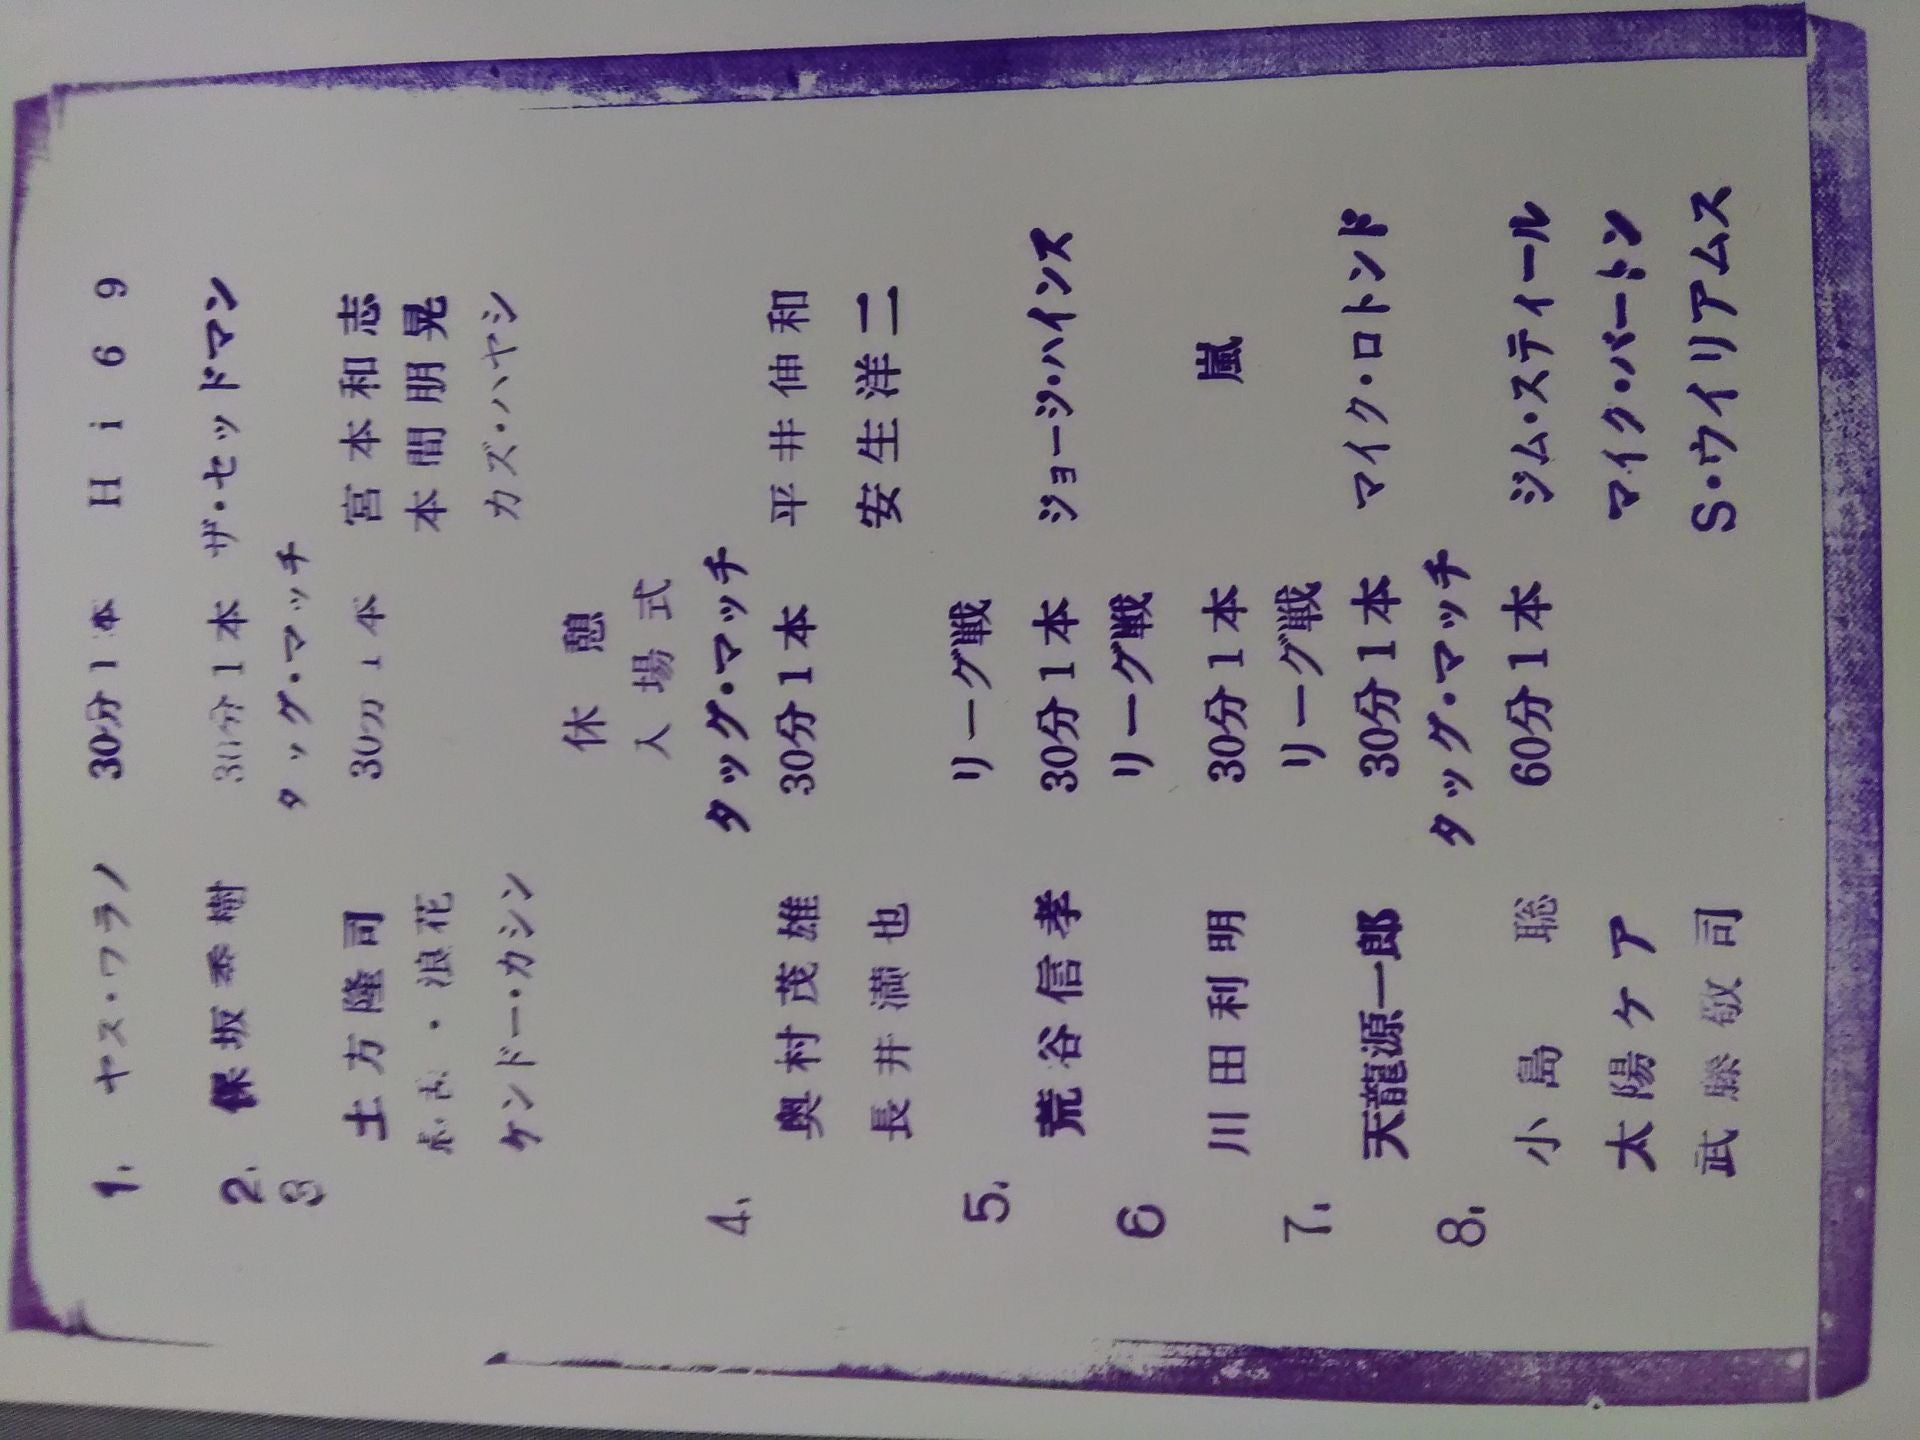 1. ヤス・ウラノ 30分1本 Hi69
2. 保坂秀樹 30分1本 ザ・セッドマン
3 タッグ・マッチ
土方隆司 30分1本 宮本和志
・浪花 本間朋晃
ケンドー・カシン カズ・ハヤシ
休憩
入場式
4. タッグ・マッチ
奥村茂雄 30分1本 平井伸和
長井満也 安生洋二
5. リーグ戦
荒谷信孝 30分1本 ジョージ・ハインス
6 リーグ戦
川田利明 30分1本 嵐
7. リーグ戦
天龍源一郎 30分1本 マイク・ロトンド
8. タッグ・マッチ
小島聡 60分1本 ジム・スティール
太陽ケア マイク・バートン
武藤敬司 S・ウイリアムス